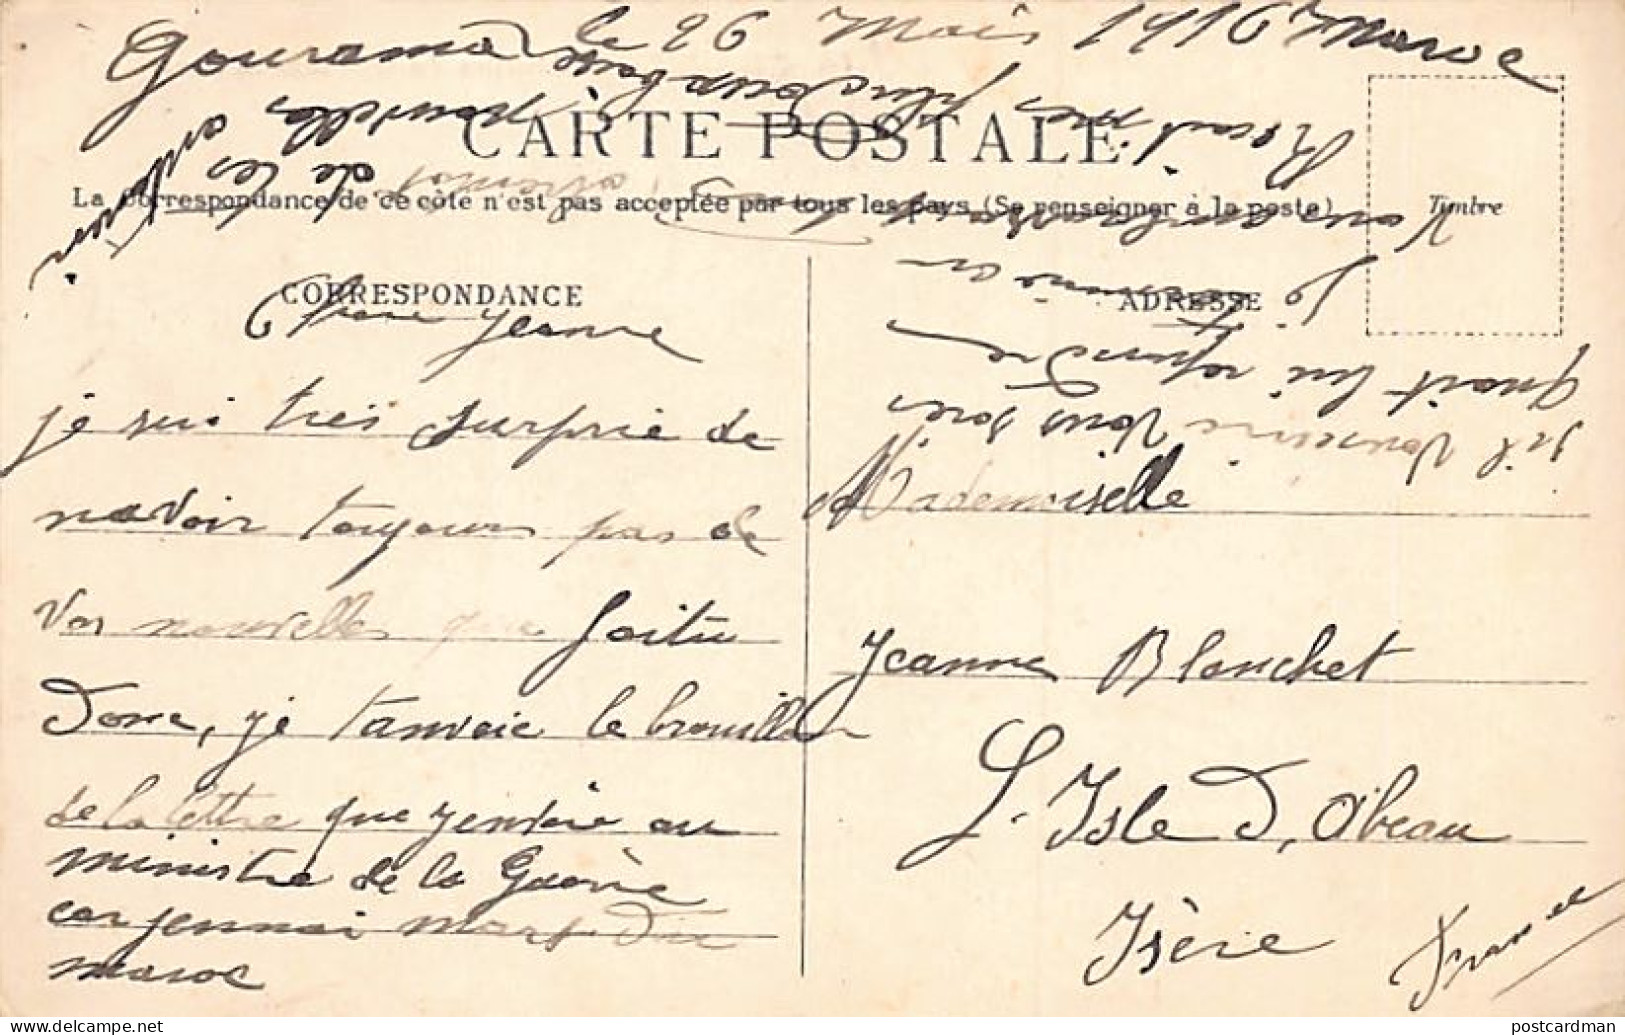 Gourama le 26 Mais 1916 Maroc
CARTE POSTALE
La Correspondance de ce côté n'est pas acceptée par tous les pays (Se renseigner à la poste)
Timbre
CORRESPONDANCE
Chere Jeanne
je sui très surprie de
navoir toujours pas de
Vos nouvelles que faitu
Donc, je tanvoie le brouillon
de la lettre que jenvoie au
ministre de la Guèrre
car jennai mare du
maroc
ADRESSE
Mademoiselle
Jeanne Blanchet
L'Isle D, Abeau
Isère
France
s'il vous
quoit lui repondre
Recait mes plus doux
de tes nouvelles
postcardman